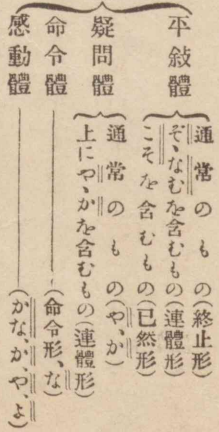 平敍體
通常のもの(終止形)
ぞ、なむを含むもの(連體形)
こそを含むもの(已然形)
疑問體
通常のもの(や、か)
上にや、かを含むもの(連體形)
命令體
(命令形、な)
感動體
(かな、か、や、よ)